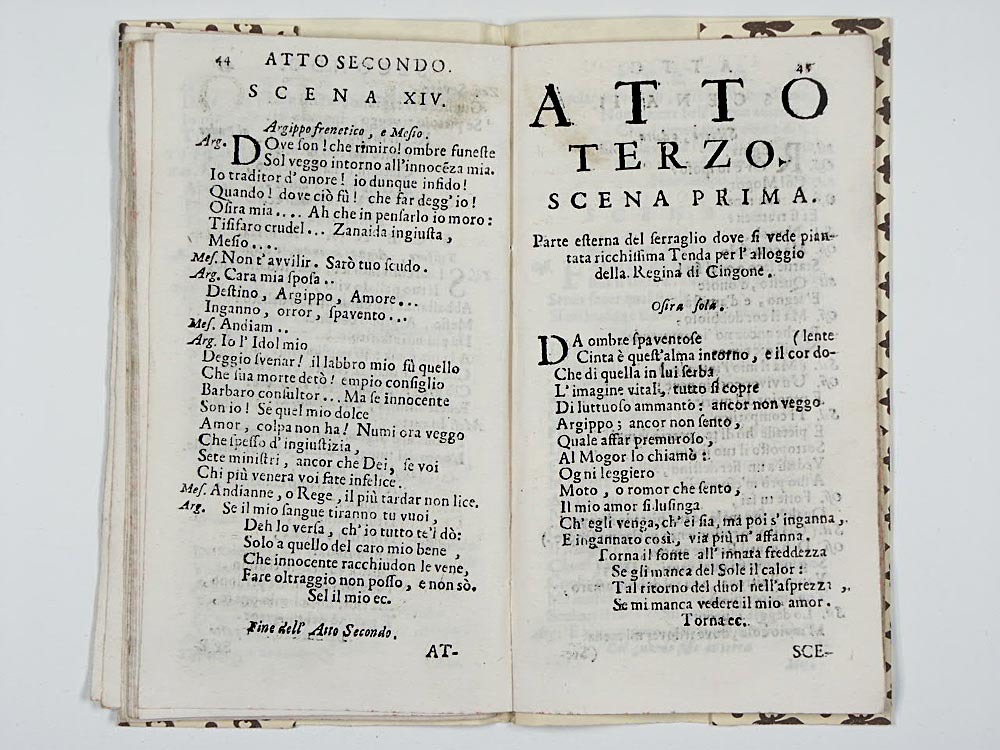 44 ATTO SECONDO.
SCENA XIV.
Argippo frenetico, e Mesio.
Arg. DOve son! che rimiro! ombre funeste
Sol veggo intorno all'innocẽza mia.
Io traditor d'onore! io dunque infido!
Quando! dove ciò fù! che far degg'io!
Osira mia.... Ah che in pensarlo io moro:
Tisifaro crudel... Zanaida ingiusta,
Mesio....
Mes. Non t'avvilir. Sarò tuo scudo.
Arg. Cara mia sposa..
Destino, Argippo, Amore...
Inganno, orror, spavento...
Mes. Andiam..
Arg. Io l'Idol mio
Deggio svenar! il labbro mio fù quello
Che sua morte detò! empio consiglio
Barbaro consultor... Ma se innocente
Son io! Se quel mio dolce
Amor, colpa non ha! Numi ora veggo
Che spesso d'ingiustizia,
Sete ministri, ancor che Dei, se voi
Chi più venera voi fate infelice.
Mes. Andianne, o Rege, il più tardar non lice.
Arg. Se il mio sangue tiranno tu vuoi,
Deh lo versa, ch'io tutto te'l dò:
Solo a quello del caro mio bene,
Che innocente racchiudon le vene,
Fare oltraggio non posso, e non sò.
Sel il mio ec.
Fine dell' Atto Secondo.
AT-
45
ATTO
TERZO.
SCENA PRIMA.
Parte esterna del serraglio dove si vede pian-
tata ricchissima Tenda per l'alloggio
della Regina di Cingone.
Osira sola.
DA ombre spaventose (lente
Cinta è quest'alma intorno, e il cor do-
Che di quella in lui serba
L'imagine vital, tutto si copre
Di luttuoso ammanto: ancor non veggo
Argippo; ancor non sento,
Quale affar premuroso,
Al Mogor lo chiamò:
Ogni leggiero
Moto, o romor che sento,
Il mio amor si lusinga
Ch'egli venga, ch'ei sia, ma poi s'inganna,
E ingannato così, via più m'affanna.
Torna il fonte all'innata freddezza
Se gli manca del Sole il calor:
Tal ritorno del duol nell'asprezza,
Se mi manca vedere il mio amor.
Torna ec.
SCE-